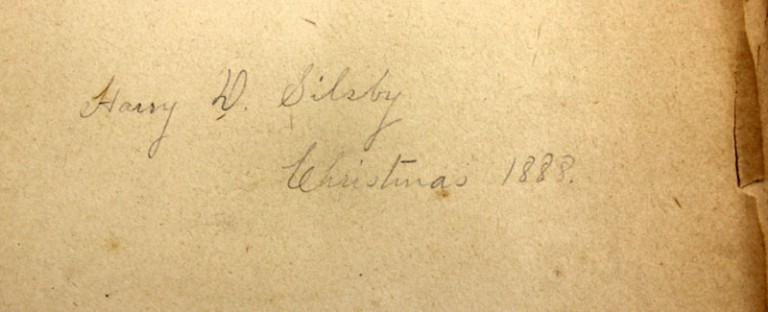 Harry D. Silsby
Christmas 1888.